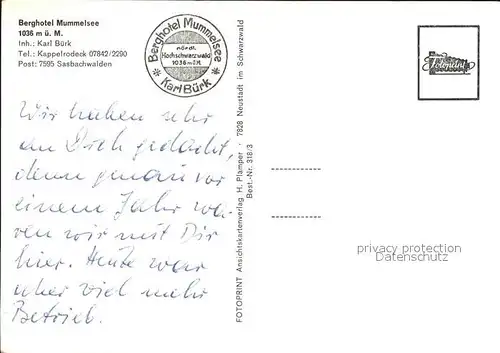 Berghotel Mummelsee
1036 m ü. M.
Inh.: Karl Bürk
Tel.: Kappelrodeck 07842/2290
Post: 7595 Sasbachwalden
Berghotel Mummelsee
nördl.
Hochschwarzwald
1036 m ü.M.
* Karl Bürk *
Wir haben sehr
an Dich gedacht,
denn genau vor
einem Jahr wa-
ren wir mit Dir
hier. Heute war
aber viel mehr
Betrieb.
FOTOPRINT Ansichtskartenverlag H. Plamper · 7828 Neustadt im Schwarzwald
Best.-Nr. 318/3
Fotoprint
privacy protection
Datenschutz